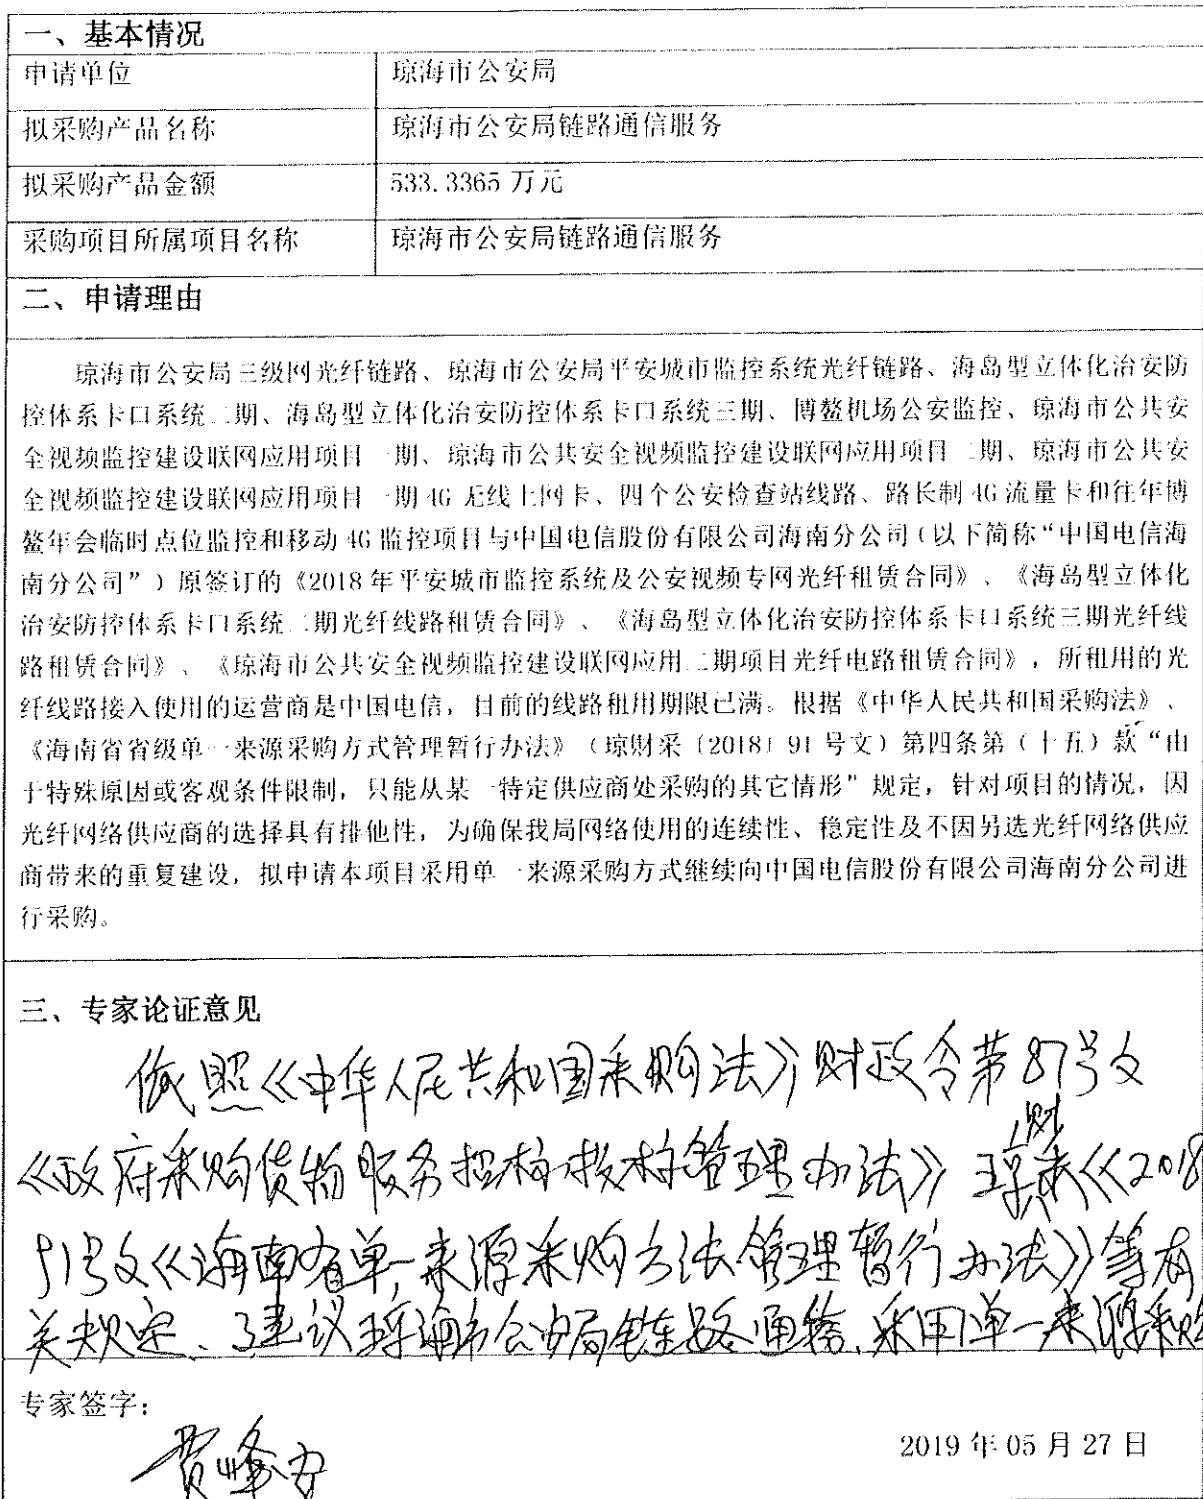 一、基本情况
申请单位 琼海市公安局
拟采购产品名称 琼海市公安局链路通信服务
拟采购产品金额 533.3365 万元
采购项目所属项目名称 琼海市公安局链路通信服务
二、申请理由
琼海市公安局三级网光纤链路、琼海市公安局平安城市监控系统光纤链路、海岛型立体化治安防
控体系卡口系统二期、海岛型立体化治安防控体系卡口系统三期、博鳌机场公安监控、琼海市公共安
全视频监控建设联网应用项目一期、琼海市公共安全视频监控建设联网应用项目二期、琼海市公共安
全视频监控建设联网应用项目一期 4G 无线上网卡、四个公安检查站线路、路长制 4G 流量卡和往年博
鳌年会临时点位监控和移动 4G 监控项目与中国电信股份有限公司海南分公司（以下简称“中国电信海
南分公司”）原签订的《2018 年平安城市监控系统及公安视频专网光纤租赁合同》、《海岛型立体化
治安防控体系卡口系统二期光纤线路租赁合同》、《海岛型立体化治安防控体系卡口系统三期光纤线
路租赁合同》、《琼海市公共安全视频监控建设联网应用二期项目光纤电路租赁合同》，所租用的光
纤线路接入使用的运营商是中国电信，目前的线路租用期限已满。根据《中华人民共和国采购法》、
《海南省省级单一来源采购方式管理暂行办法》（琼财采〔2018〕91 号文）第四条第（十五）款“由
于特殊原因或客观条件限制，只能从某一特定供应商处采购的其它情形”规定，针对项目的情况，因
光纤网络供应商的选择具有排他性，为确保我局网络使用的连续性、稳定性及不因另选光纤网络供应
商带来的重复建设，拟申请本项目采用单一来源采购方式继续向中国电信股份有限公司海南分公司进
行采购。
三、专家论证意见
依照《中华人民共和国采购法》财政令第87号文
《政府采购货物服务招标投标管理办法》琼财采《2018
91号文《海南省单一来源采购方法管理暂行办法》等有
关规定、建议琼海市公安局链路通信、采用单一来源采购
专家签字：
2019 年 05 月 27 日